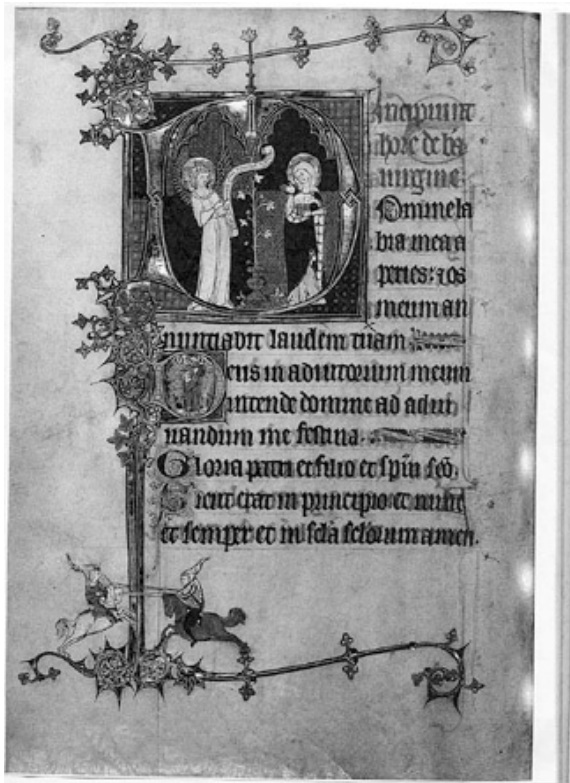 Incipiunt
hore de bã
uirgine
Domine la
bia mea a
peries: ⁊ os
meum an
nuntiabit laudem tuam
Deus in adiutorium meum
intende domine ad adiu
uandum me festina
Gloria patri et filio et spũi scõ.
Sicut erat in principio et nunc
et semper et in scła scłorum amen.